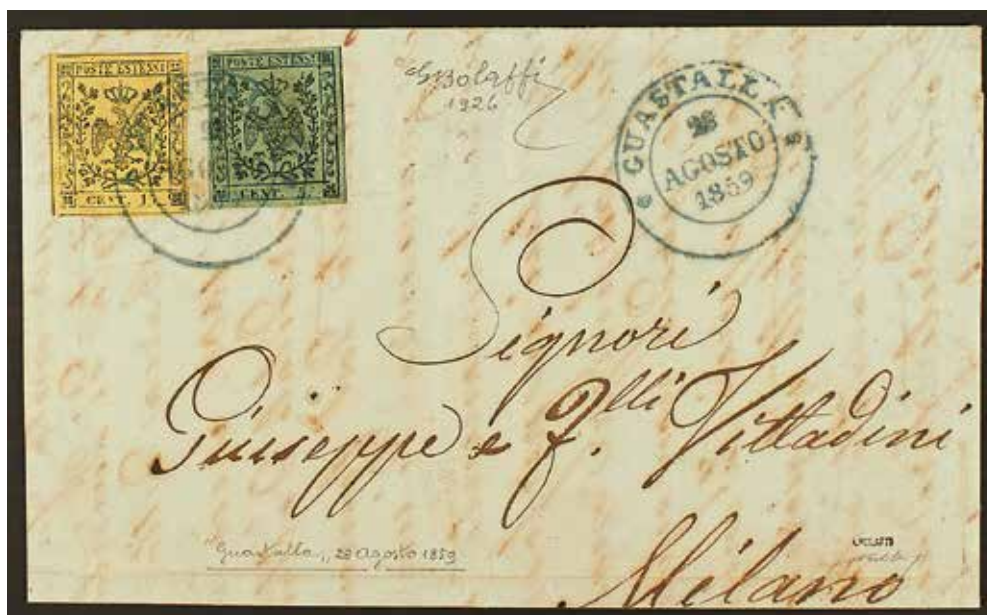 POSTE ESTENSI
CENT. 15
POSTE ESTENSI
CENT. 5.
GBolaffi
1926
GUASTALLA
28
AGOSTO
1859
Signori
Giuseppe e F.lli Vittadini
Milano
Guastalla,, 28 Agosto 1859